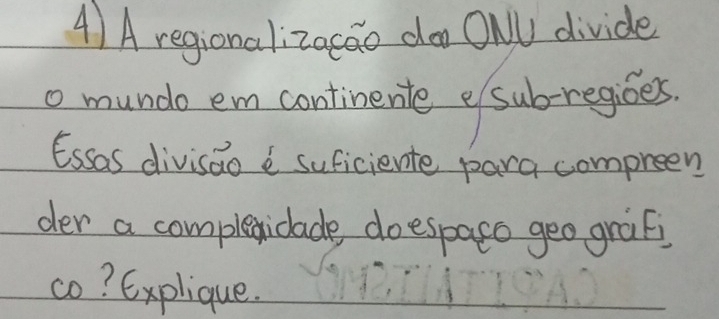 4) A regionalização da ONU divide
o mundo em continente e sub-regiões.
Essas divisão é suficiente para compreen
der a complexidade do espaço geográfi
co? Explique.
CAPITALISMO